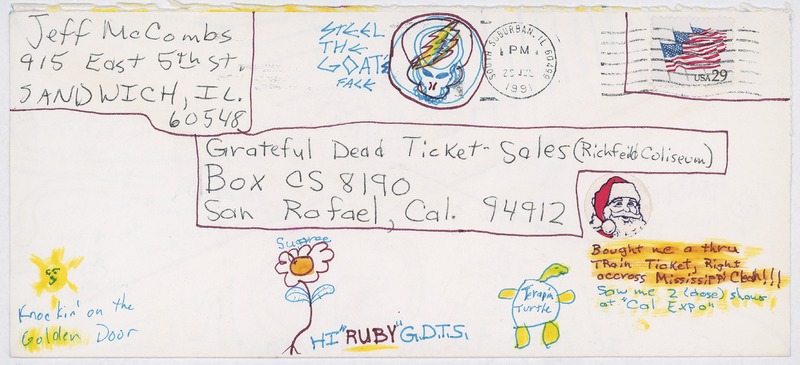 Jeff McCombs
915 East 5th st.
SANDWICH, IL.
60548
STEEL
THE
GOATS
FACE
SOUTH SUBURBAN, IL 60499
PM
JUL
1991
USA 29
Grateful Dead Ticket-Sales (Richfeild Coliseum)
Box CS 8190
San Rafael, Cal. 94912
Bought me a thru
TRain Ticket, Right
accross Mississippi Cleah!!!
Saw me 2 (dose) shows
at "Cal Expo"
Sugaree
Terapin
Turtle
Knockin' on the
Golden Door
HI "RUBY" G.D.T.S.